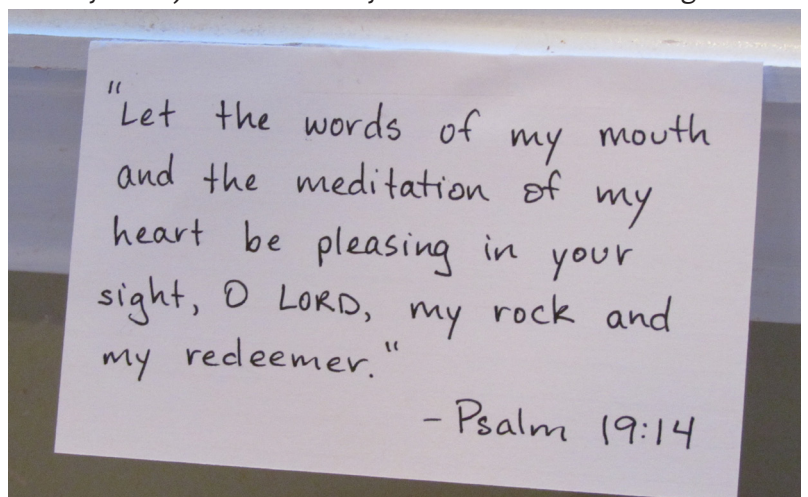 "Let the words of my mouth
and the meditation of my
heart be pleasing in your
sight, O LORD, my rock and
my redeemer."
- Psalm 19:14